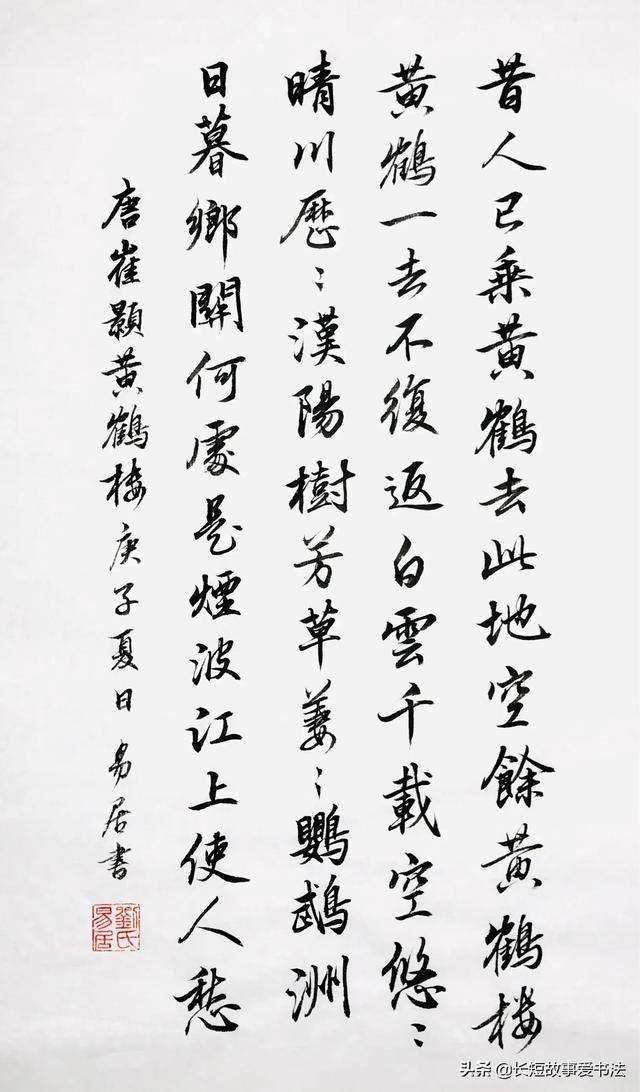 昔人已乗黄鶴去此地空餘黄鶴楼
黄鶴一去不復返白雲千載空悠〻
晴川歴〻漢陽樹芳草萋〻鸚鵡洲
日暮鄉關何處是煙波江上使人愁
唐崔顥黄鶴楼庚子夏日易居書
劉氏易居
头条 @长短故事爱书法